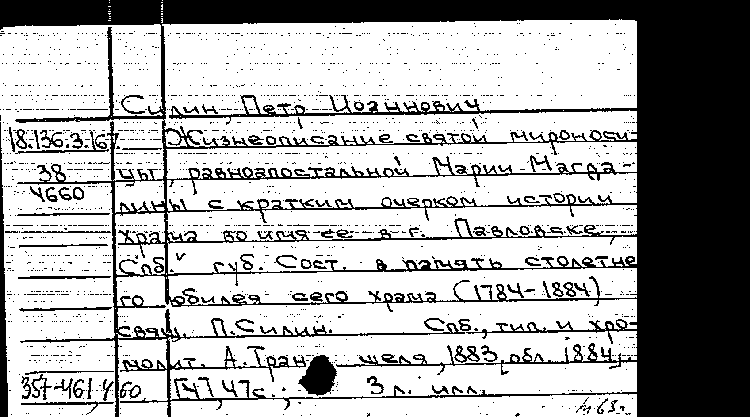 Силин, Петр Иоаннович
18.136.3.167 Жизнеописание святой мироноси-
38 цы, равноапостальной Марии Магда-
4660 лины с кратким очерком истории
храма во имя ее в г. Павловске,
Спб. губ. Сост. в память столетне
го юбилея сего храма (1784-1884)
свящ. П. Силин. Спб., тип. и хро-
молит. А. Траншеля, 1883, [обл. 1884].
[4], 47 с.; 3 л. илл.